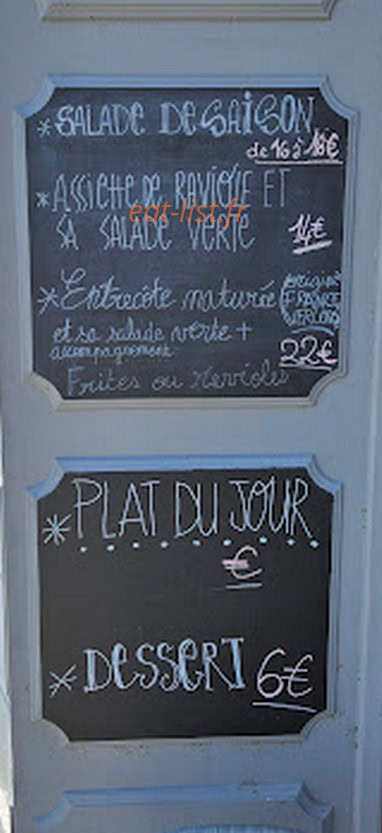 * SALADE DE SAISON
de 16 à 18€
* ASSIETTE DE RAVIOLE ET
SA SALADE VERTE 14€
eat-list.fr
* Entrecôte naturée (origine
FRANCE
et sa salade verte +
accompagnement: 22€
Frites ou Ravioles
* PLAT DU JOUR
€
* DESSERT 6€